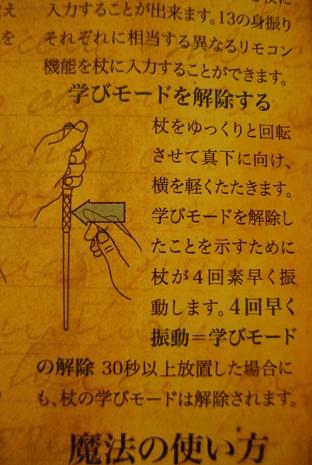 入力することが出来ます。13の身振り
それぞれに相当する異なるリモコン
機能を杖に入力することができます。
学びモードを解除する
杖をゆっくりと回転
させて真下に向け、
横を軽くたたきます。
学びモードを解除し
たことを示すために
杖が4回素早く振
動します。4回早く
振動＝学びモード
の解除 30秒以上放置した場合に
も、杖の学びモードは解除されます。
魔法の使い方